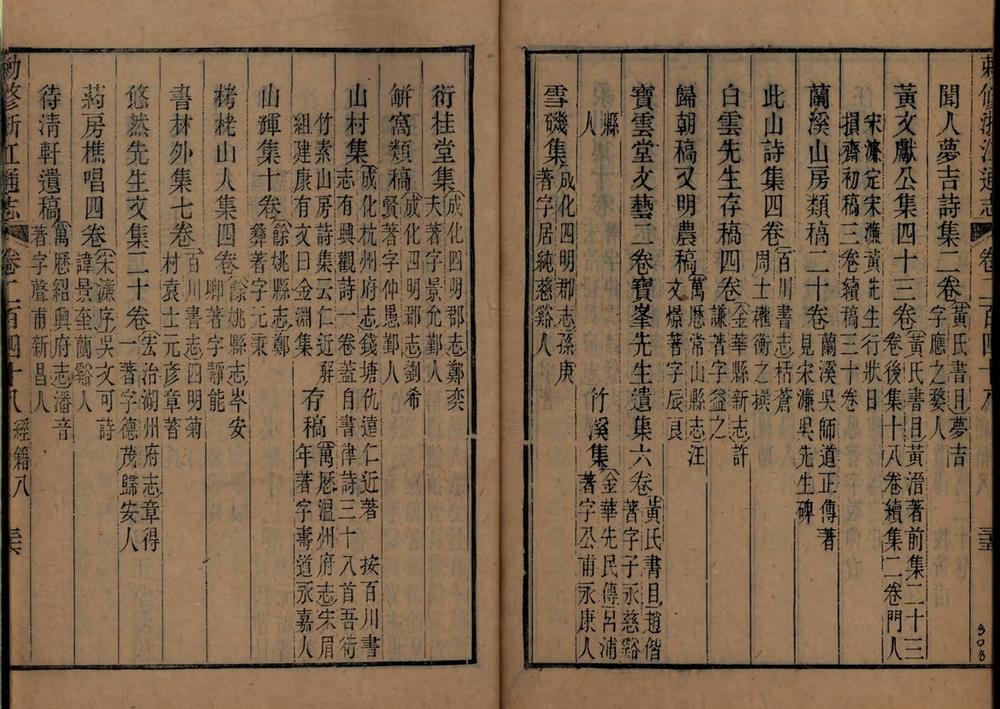 敕修浙江通志
卷二百四十八
三五
聞人夢吉詩集二卷
黃氏書目夢吉
字應之婺人
黃文獻公集四十三卷
黃氏書目黃溍著前集二十三
卷後集十八卷續集二卷門人
宋濂定宋濂黃先生行狀曰
損齋初稿三卷續稿三十卷
蘭溪山房類稿二十卷
蘭溪吳師道正傳著
見宋濂吳先生碑
此山詩集四卷
百川書志栝蒼
周士權衡之撰
白雲先生存稿四卷
金華縣新志許
謙著字益之
歸朝稿又明農稿
萬歷常山縣志汪
文璟著字辰良
寶雲堂文藝二卷寶峯先生遺集六卷
黃氏書目趙偕
著字子永慈谿
縣
人
竹溪集
金華先民傳呂浦
著字公甫永康人
雪磯集
成化四明郡志孫庚
著字居純慈谿人
308
衍桂堂集
成化四明郡志鄭奕
夫著字景允鄞人
缾窩類稿
成化四明郡志劉希
賢著字仲愚鄞人
山村集
成化杭州府志錢塘仇遠仁近著 按百川書
志有興觀詩一卷蓋自書律詩三十八首吾衍
竹素山房詩集云仁近解
組建康有文曰金淵集
存稿
萬歷溫州府志宋眉
年著字壽道永嘉人
山輝集十卷
餘姚縣志鄭
彝著字元秉
栲栳山人集四卷
餘姚縣志岑安
卿著字靜能
書林外集七卷
百川書志四明菊
村袁士元彥章著
悠然先生文集二十卷
宏治湖州府志章得
一著字德茂歸安人
葯房樵唱四卷
宋濂序吳文可詩
諱景奎蘭谿人
待清軒遺稿
萬歷紹興府志潘音
著字聲甫新昌人
敕修浙江通志
卷二百四十八
經籍八
三六